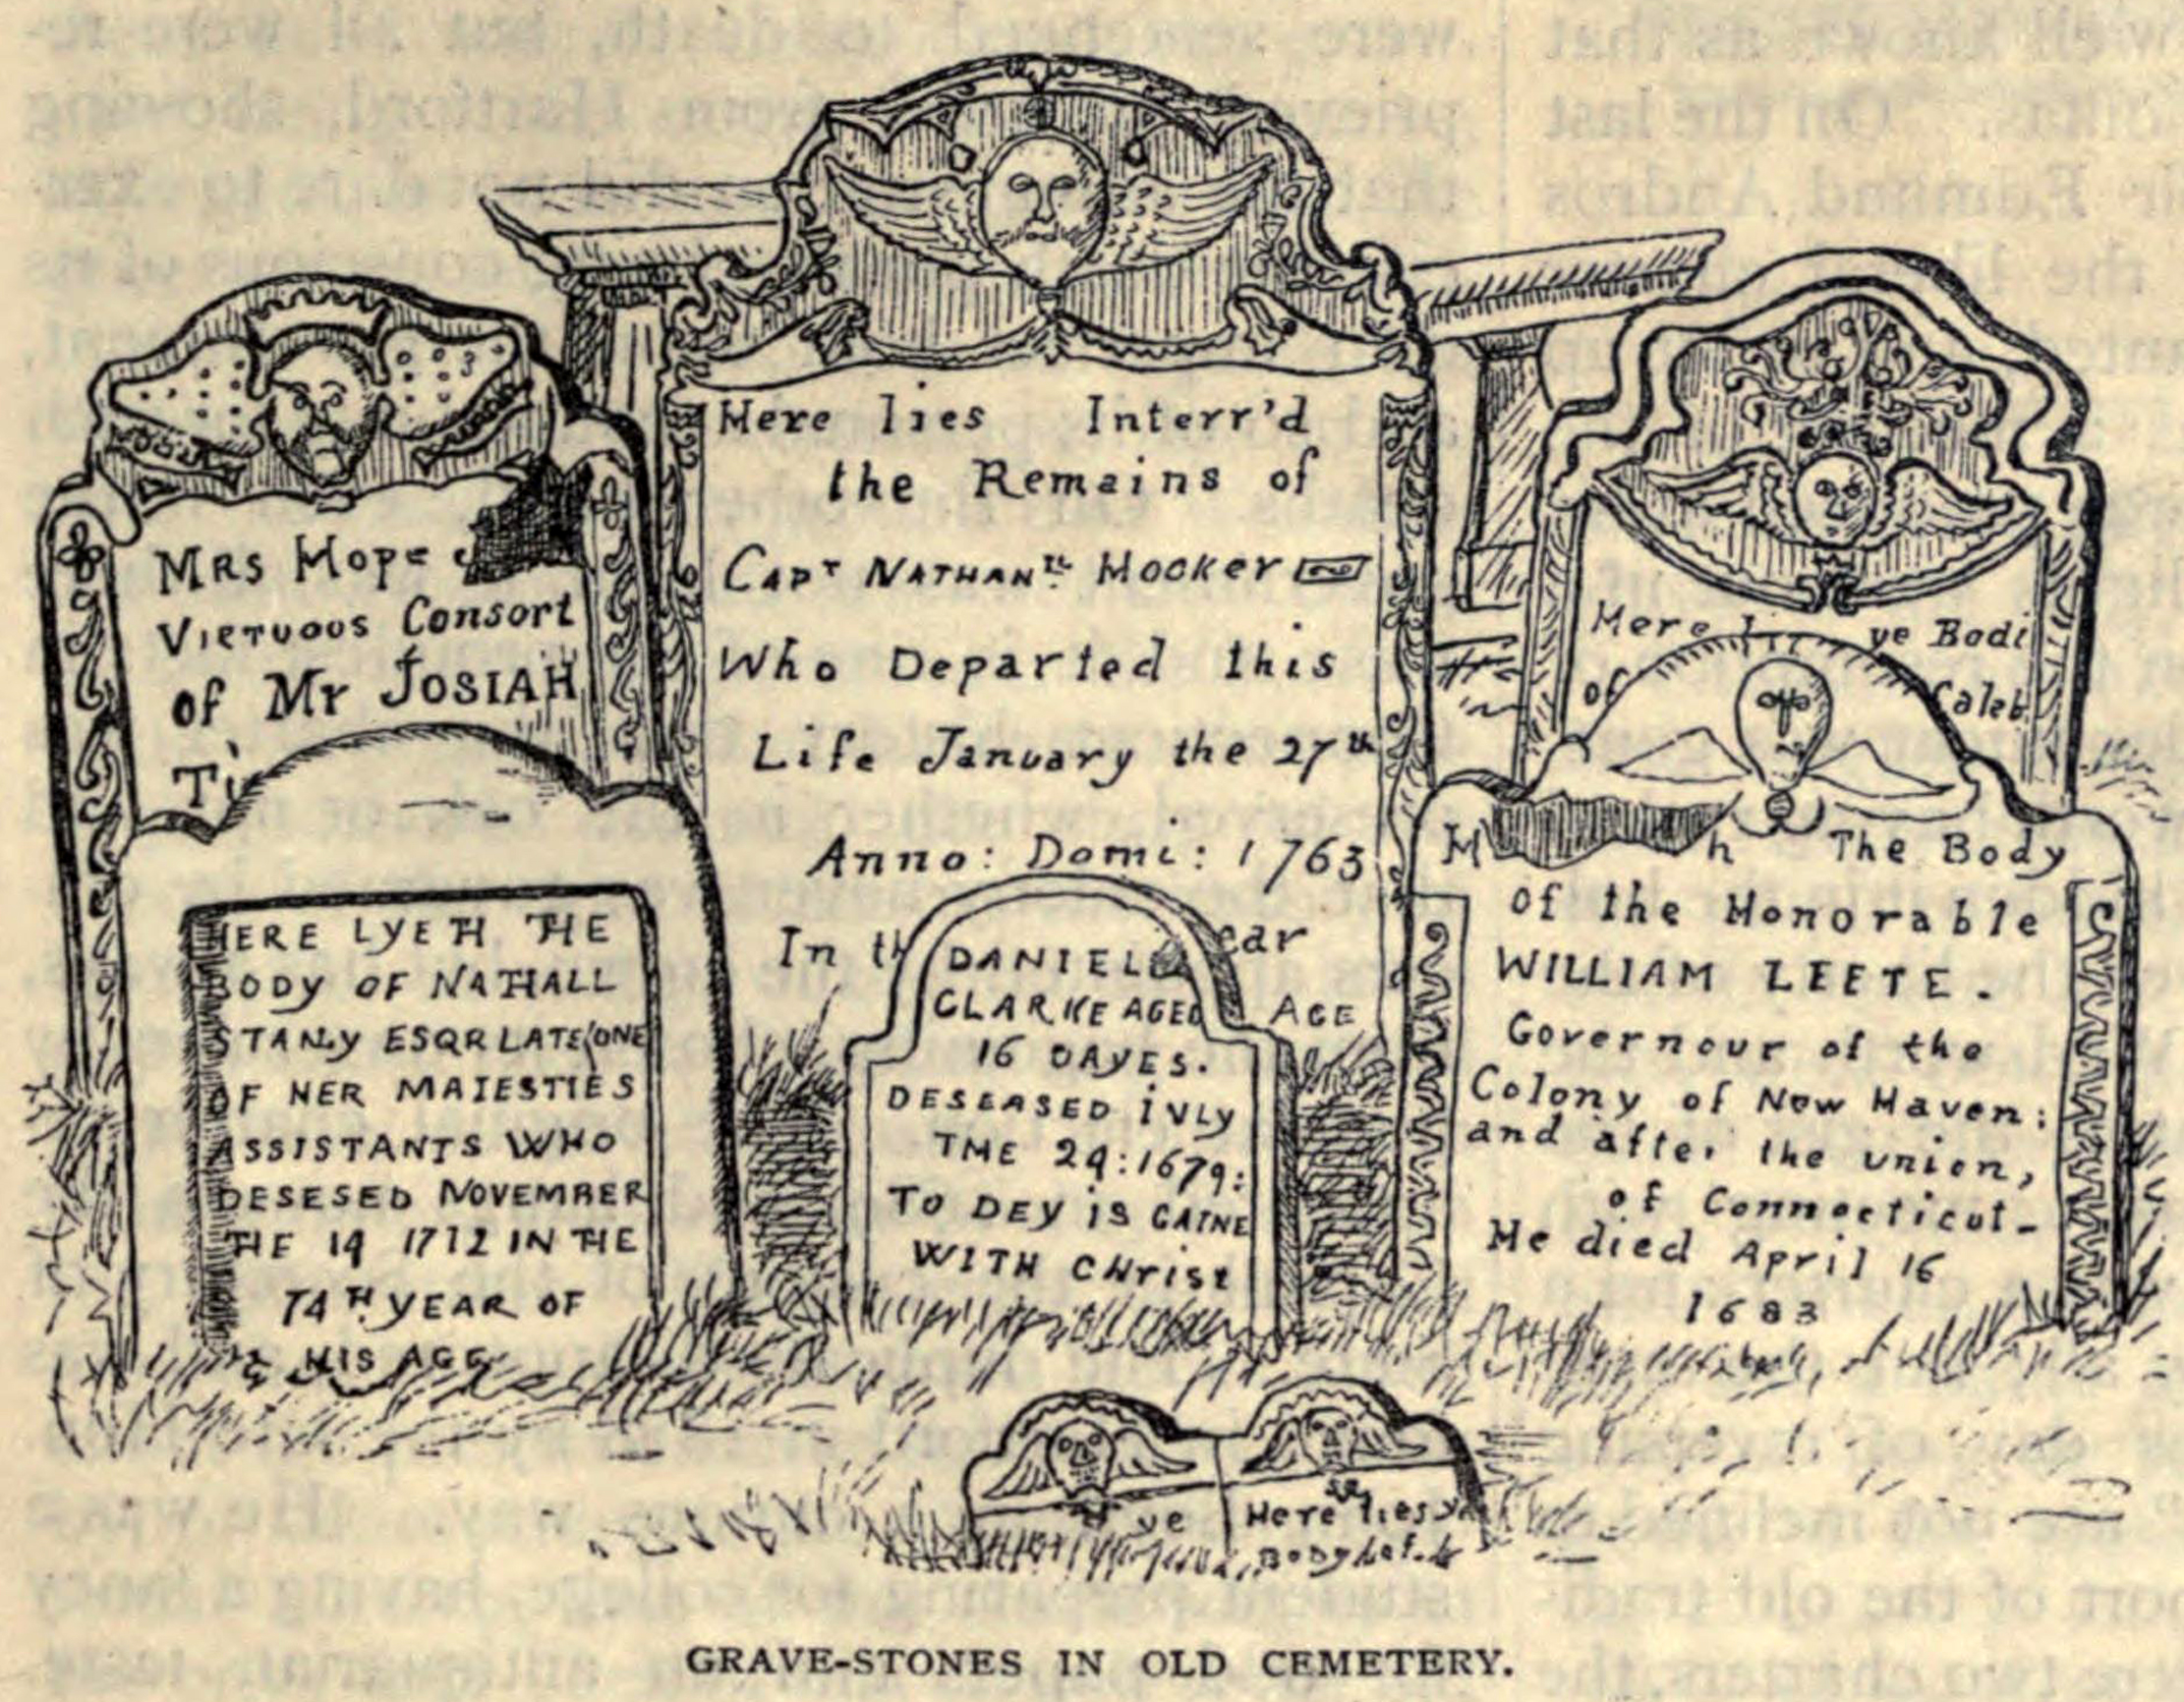 Mrs Hope
Virtuous Consort
of Mr Josiah
Here lies Interr'd
the Remains of
Capt Nathanll Hooker
Who Departed this
Life January the 27th
Anno: Domi: 1763
In
AGE
Here ye Bodi
of Caleb
HERE LYETH THE
BODY OF NATHALL
STANLY ESQR LATE ONE
OF HER MAIESTIES
ASSISTANTS WHO
DESESED NOVEMBER
THE 14 1712 IN THE
74TH YEAR OF
HIS AGE
DANIEL
CLARKE AGED
16 DAYES.
DESEASED IVLY
THE 24:1679:
TO DEY IS GAINE
WITH CHRIST
The Body
of the Honorable
WILLIAM LEETE.
Governour of the
Colony of New Haven:
and after the union,
of Connecticut-
He died April 16
1683
ye
Here lies ye
Body
GRAVE-STONES IN OLD CEMETERY.